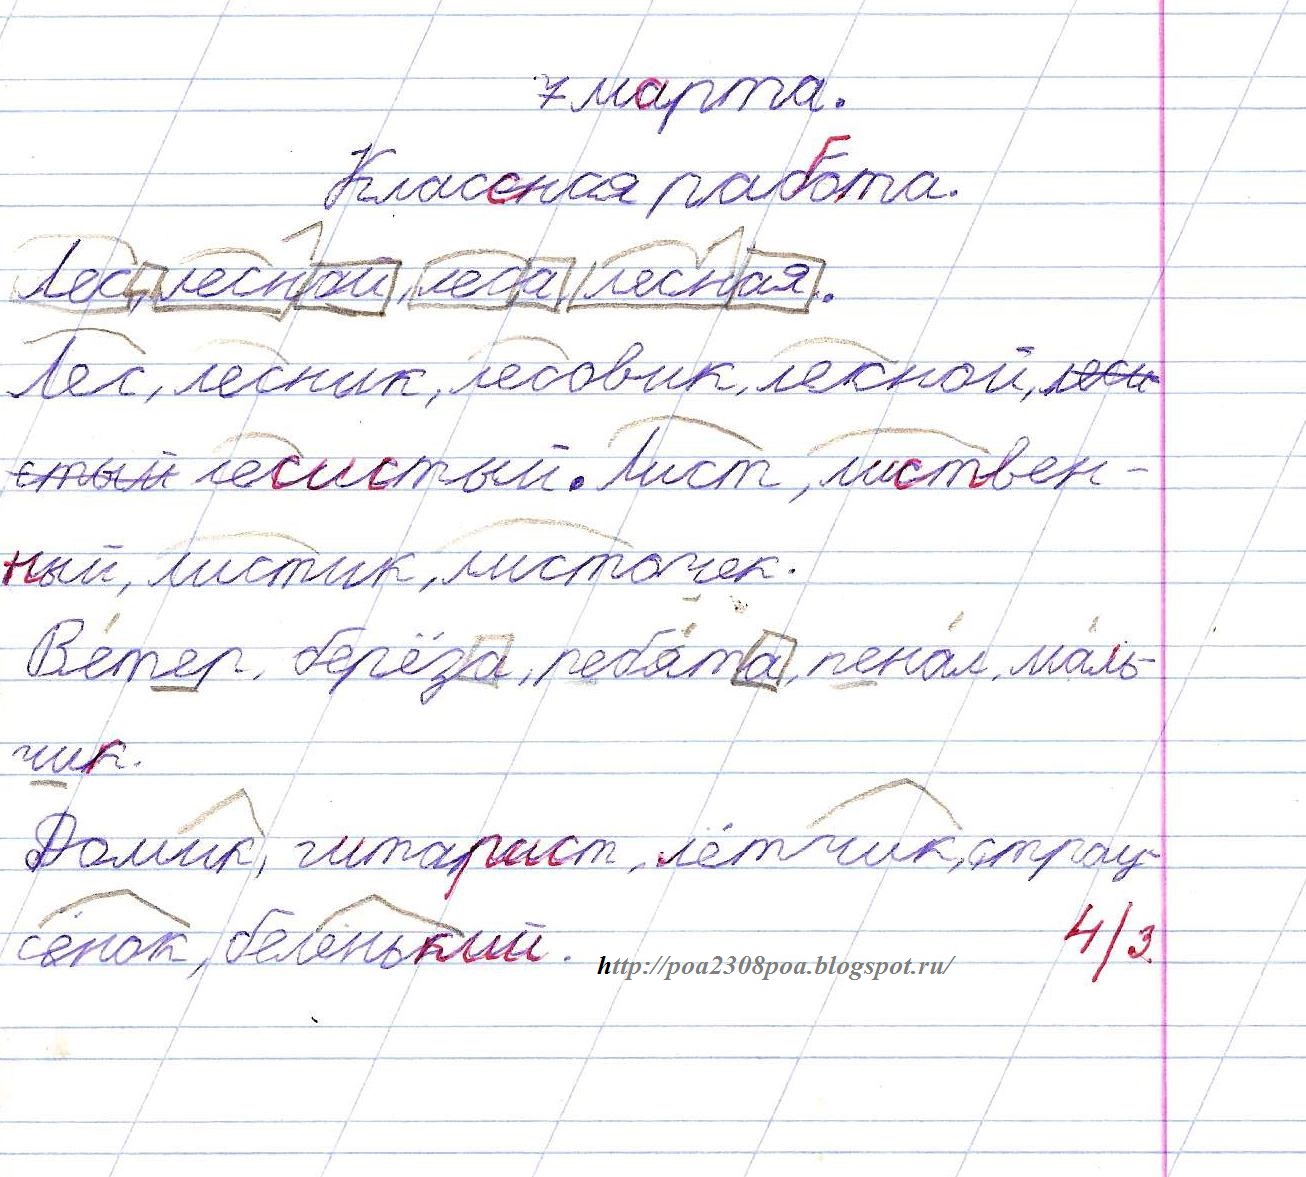 7 марта.
Классная работа.
Лес, лесной, леса, лесная.
Лес, лесник, лесовик, лекной, леси
стый лесистый. Лист, листвен-
ный, листик, листочек.
Ве́тер, берёза, ребя́та, пена́л, ма́ль-
чик.
Домик, гитарист, лётчик, страу-
сёнок, беленький.
4/3
http://poa2308poa.blogspot.ru/